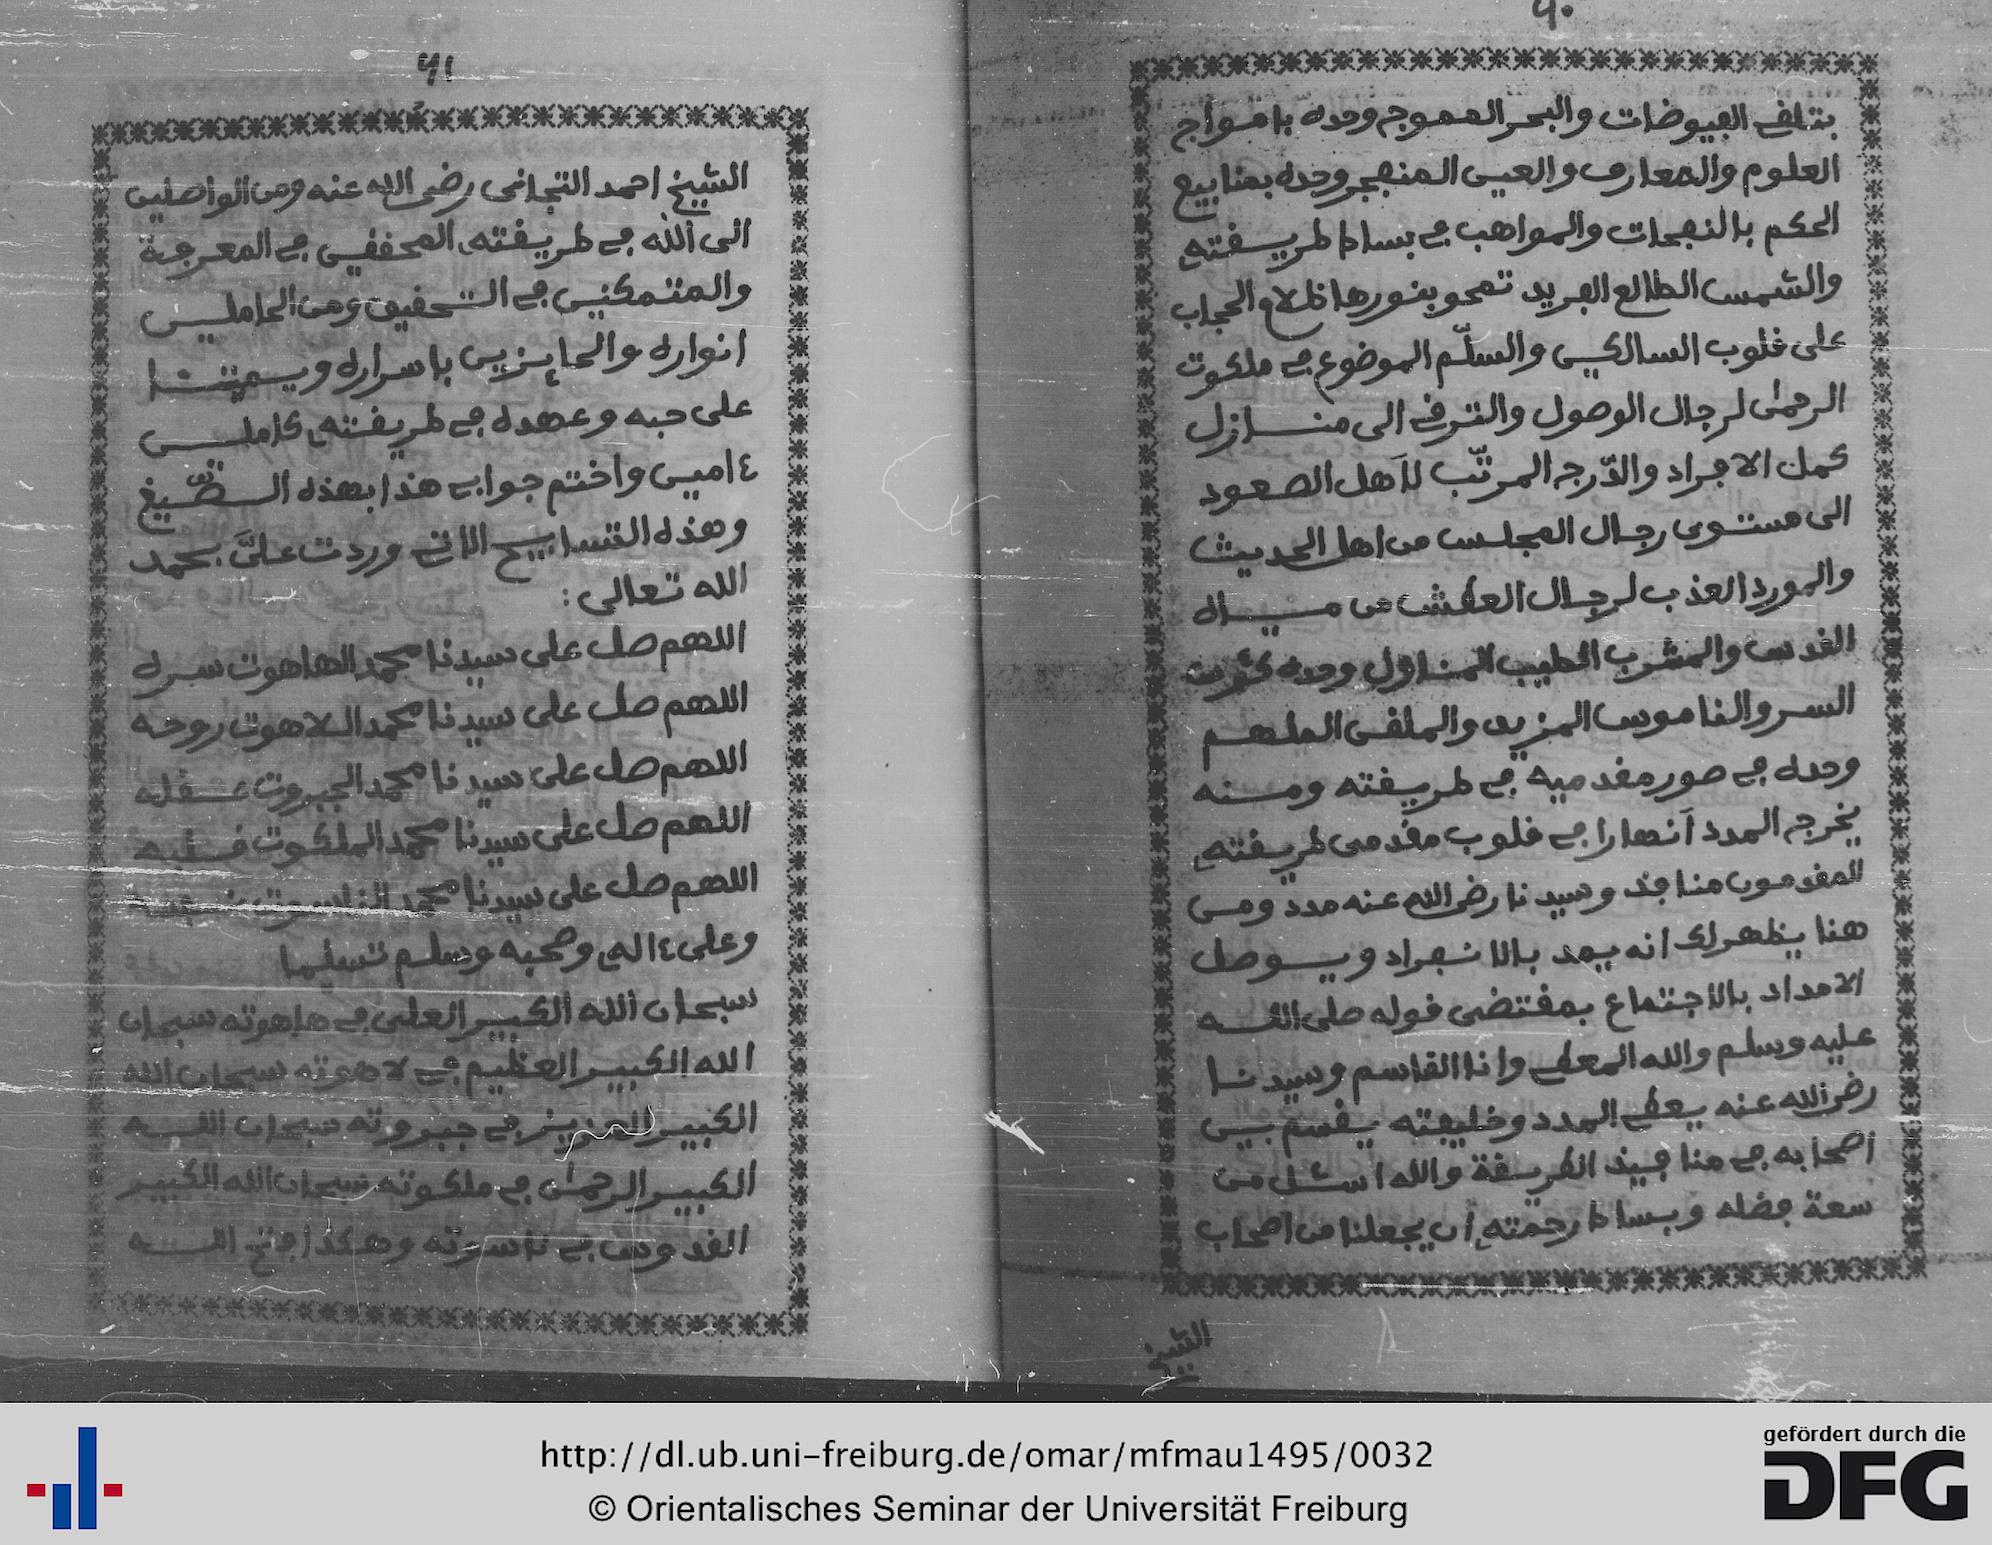 ٦٠
بتلقى الفيوضات والبحر المموج وحده بامواج
العلوم والمعارف والعين المنفجر وحده بمنابيع
الحكم بالنفحات والمواهب في بساط طريقته
والشمس الطالع الفريد تمحو بنورها ظلام الحجاب
على قلوب السالكين والسلّم الموضوع في ملكوت
الرحمٰن لرجال الوصول والترقي الى منازل
كمل الافراد والدّرج المرتّب لأهل الصعود
الى مستوى رجال المجلس من اهل الحديث
والمورد العذب لرجال العطش من مياه
القدس والمشرب الطيب المناول وحده كئوس
السر والناموس المزيد والملقى الملهم
وحده في صور مقدميه في طريقته ومنه
يخرج المدد أنهارا في قلوب مقدمى طريقته
المقدمون منافذ وسيدنا رضى الله عنه مدد ومن
هنا يظهر لك انه يمد بالانفراد ويوصل
الامداد بالاجتماع بمقتضى قوله صلى الله
عليه وسلم والله المعطي وانا القاسم وسيدنا
رضى الله عنه يعطي المدد وخليفته يقسم بين
اصحابه في منافيذ الطريقة والله اسئل من
سعة فضله وبساط رحمته أن يجعلنا من اصحاب
الشيخ
٦١
الشيخ احمد التجانى رضى الله عنه ومن الواصلين
الى الله في طريقته المحققين في المعرفة
والمتمكنين في التحقيق ومن الحاملين
انواره والحايزين باسراره ويميتنا
على حبه وعهده في طريقته كاملين
ءامين واختم جوابي هذا بهذه
وهذه التسابيح التي وردت علىَّ بحمد
الله تعالى :
اللهم صل على سيدنا محمد الهاهوت سره
اللهم صل على سيدنا محمد اللاهوت روحه
اللهم صل على سيدنا محمد الجبروت عقله
اللهم صل على سيدنا محمد الملكوت قلبه
اللهم صل على سيدنا محمد الناسوت
وعلى ءاله وصحبه وسلم تسليما
سبحان الله الكبير العلى في هاهوته سبحان
الله الكبير العظيم في لاهوته سبحان الله
الكبير العزيز في جبروته سبحان الله
الكبير الرحمٰن في ملكوته سبحان الله الكبير
القدوس في ناسوته وهكذا فتح الله
http://dl.ub.uni-freiburg.de/omar/mfmau1495/0032
© Orientalisches Seminar der Universität Freiburg
gefördert durch die
DFG